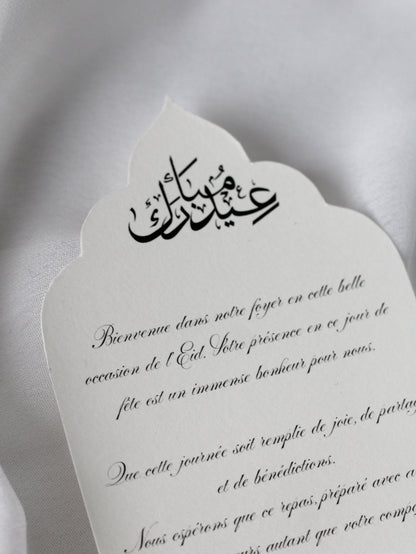 عيد مبارك
Bienvenue dans notre foyer en cette belle
occasion de l'Eid. Votre présence en ce jour de
fête est un immense bonheur pour nous.
Que cette journée soit remplie de joie, de partag
et de bénédictions.
Nous espérons que ce repas, préparé avec a
urs autant que votre comp